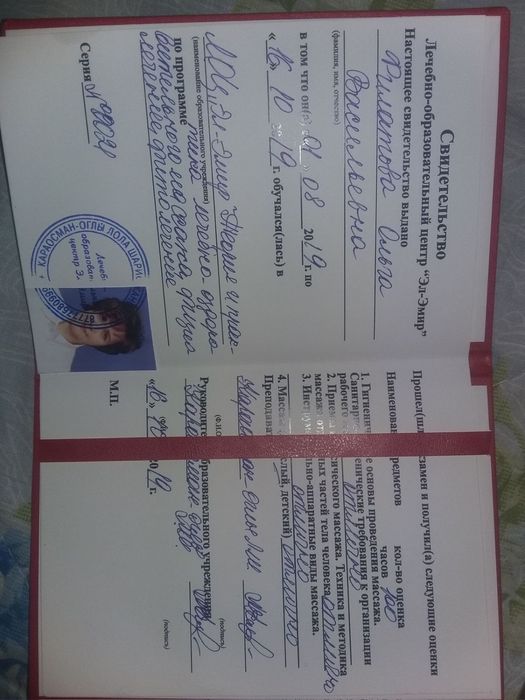 Свидетельство
Лечебно-образовательный центр "Эл-Эмир"
Настоящее свидетельство выдано
Филатова Ольга
Васильевна
(фамилия, имя, отчество)
в том что он(а) с «01» 08 2019 г. по
«16» 10 2019 г. обучался(лась) в
ЛОЦ "Эл-Эмир" Теория и прак-
(наименование образовательного учреждения)
тика лечебно оздоро-
по программе
вительного массажа, физио
лечение, фитолечение
Серия
КАРАОСМАН-ОГЛЫ ЛОЛА
Лечеб
образоват
центр Э
Прошел(шла) экзамен и получил(а) следующие оценки
Наименование предметов кол-во оценка
часов
1. Гигиенические основы проведения массажа.
Санитарно-гигиенические требования к организации
рабочего отлично
2. Приемы классического массажа. Техника и методика
массажа отдельных частей тела человека отлично
3. Инструментально-аппаратные виды массажа.
отлично
4. Массаж (взрослый, детский) отлично
Преподаватель
(ф.и.о
(подпись)
Руководитель образовательного учреждения
Караосман-оглы
(подпись)
М.П.
«18» 10 2019 г.